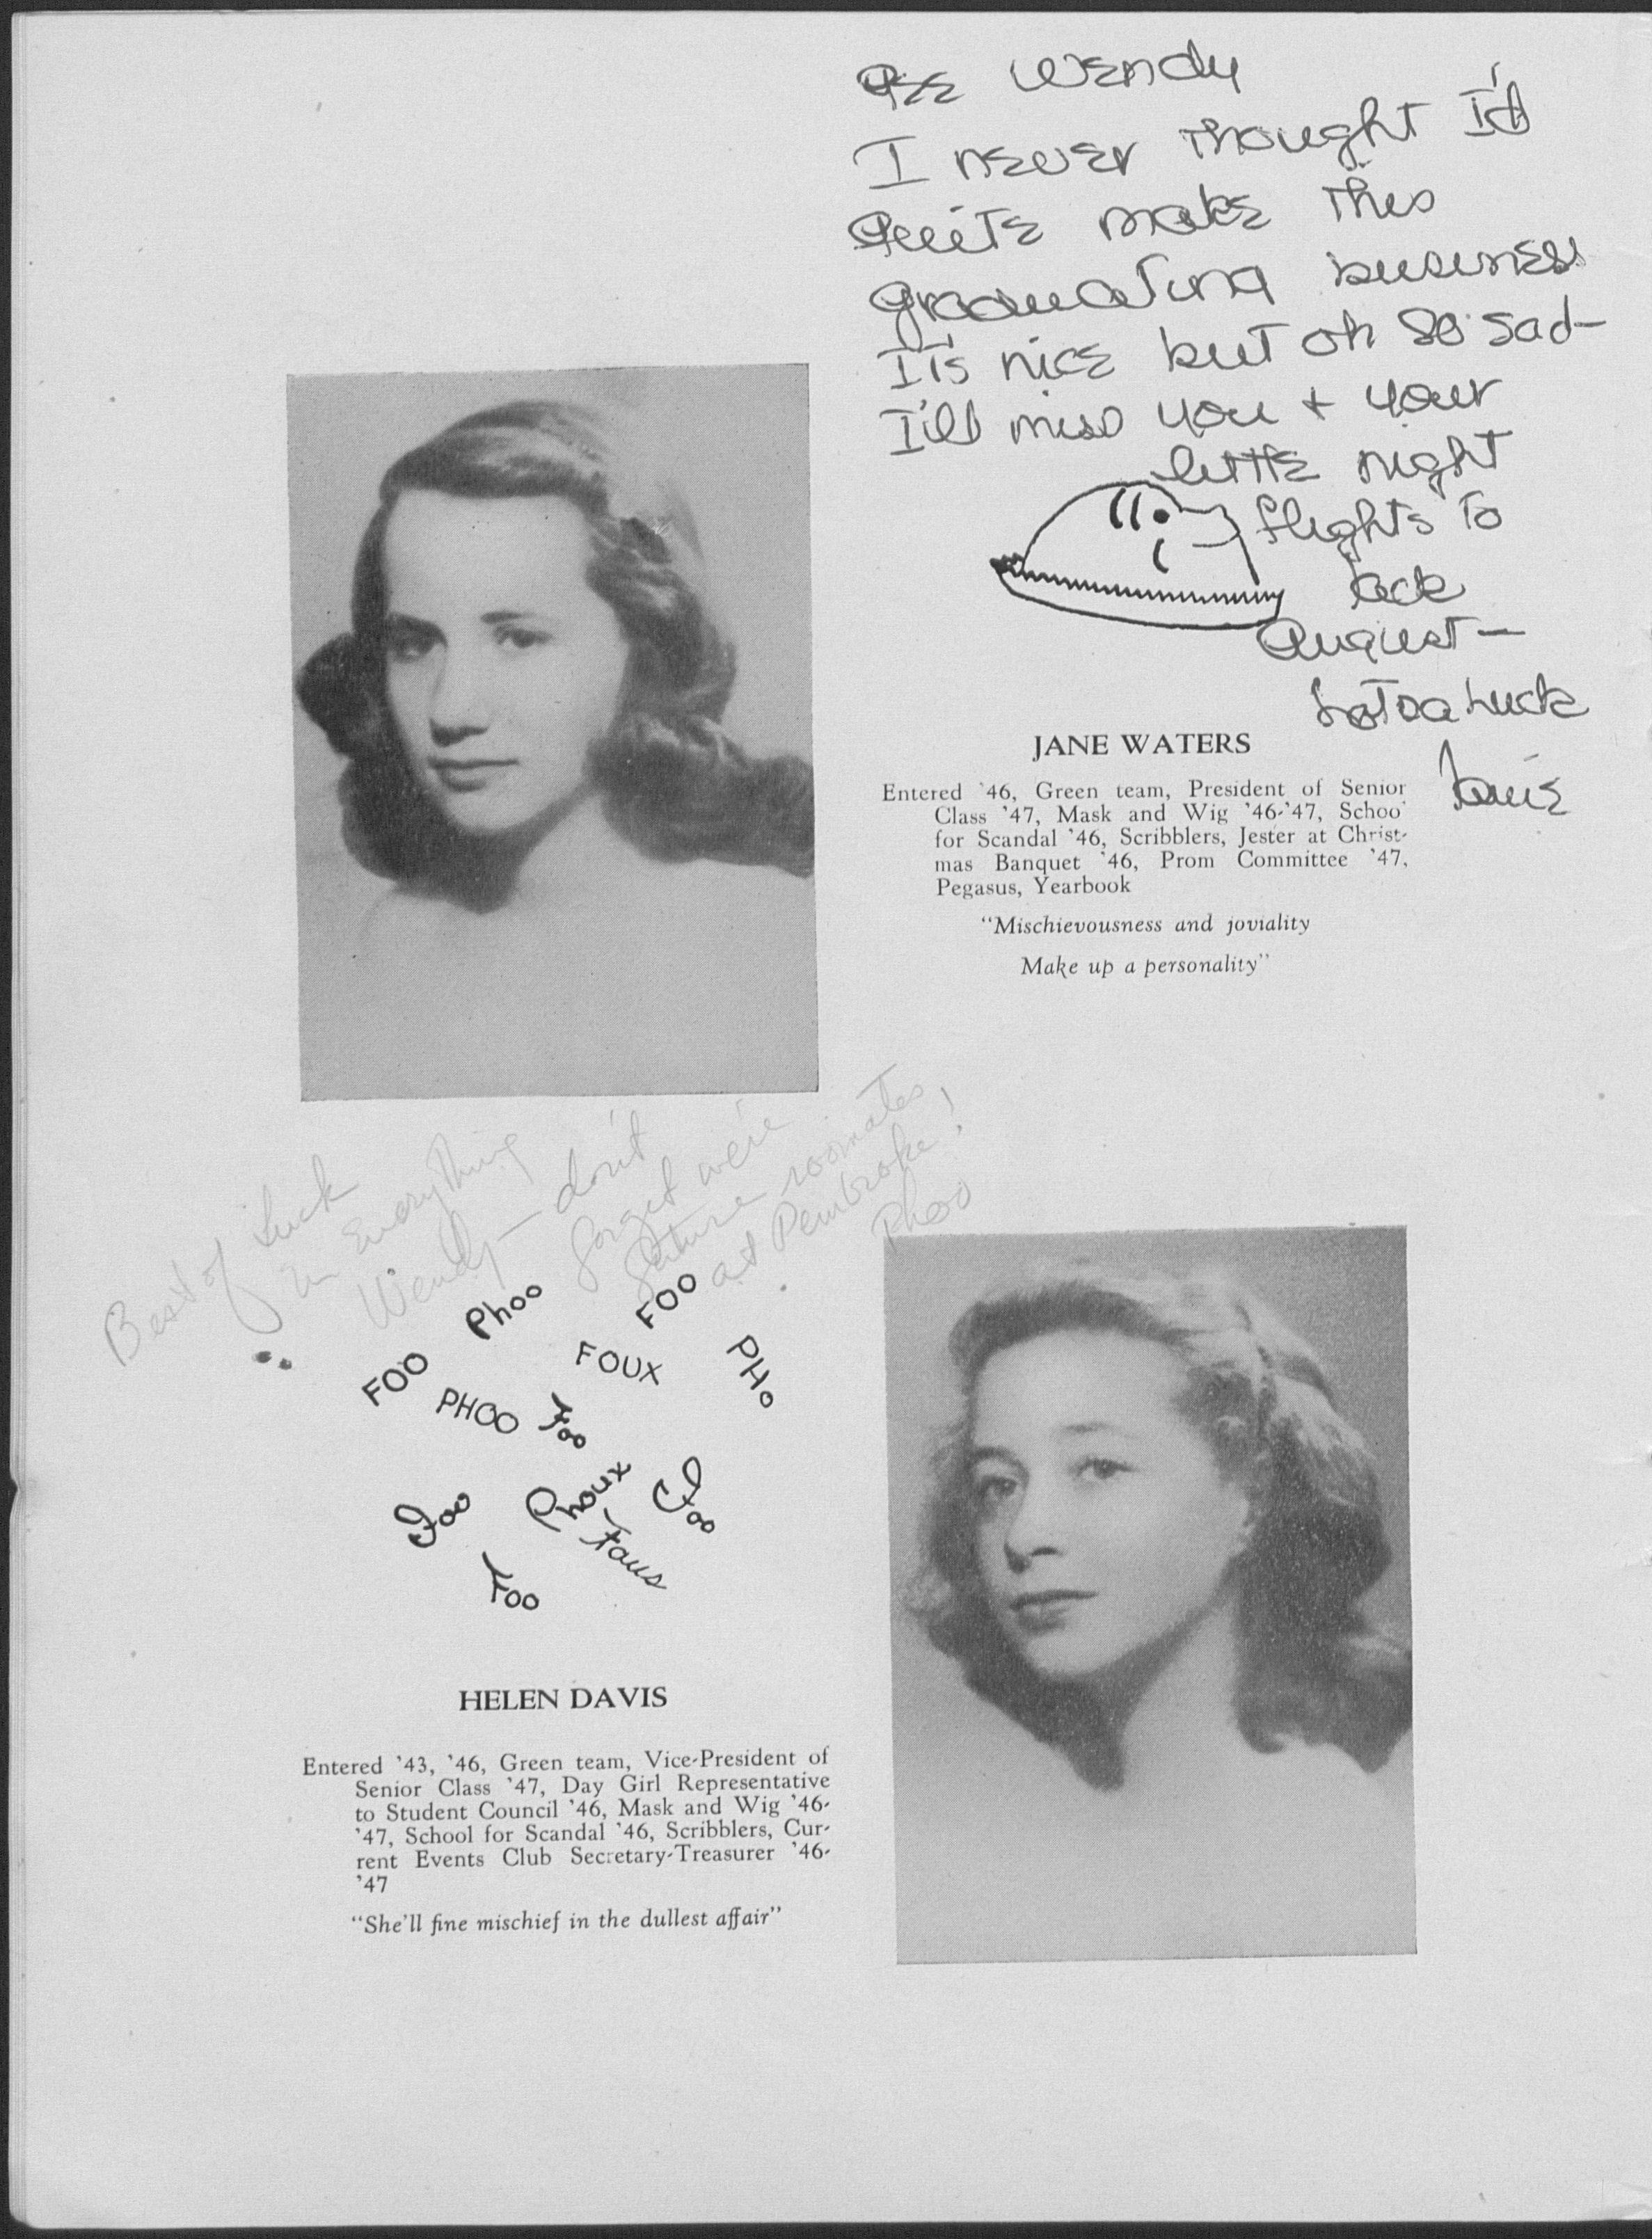 Gee Wendy
I never thought I'd
quite make this
graduating business
It's nice but oh so sad—
I'll miss you + your
little night
flights to
Jack
August—
Lotsa Luck
JANE WATERS
Entered '46, Green team, President of Senior
Class '47, Mask and Wig '46-'47, Schoo
for Scandal '46, Scribblers, Jester at Christ-
mas Banquet '46, Prom Committee '47,
Pegasus, Yearbook
"Mischievousness and joviality
Make up a personality"
Best of Luck
in Everything
Wendy— don't
forget we're
future roomates
at Pembroke!
Phoo
Phoo
FOO
FOO
FOUX
PHO
PHOO
Foo
Foo
Phoux
Foo
Faus
Foo
HELEN DAVIS
Entered '43, '46, Green team, Vice-President of
Senior Class '47, Day Girl Representative
to Student Council '46, Mask and Wig '46-
'47, School for Scandal '46, Scribblers, Cur-
rent Events Club Secretary-Treasurer '46-
'47
"She'll fine mischief in the dullest affair"